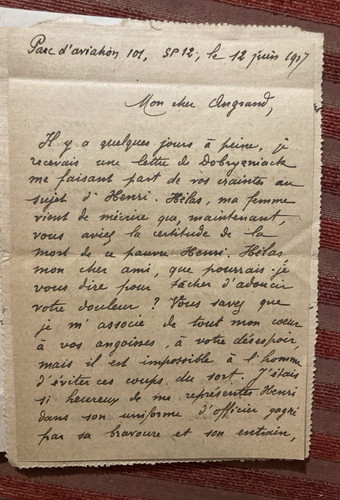 Parc d'aviation 101, SP12, le 12 juin 1917
Mon cher Angrand,
Il y a quelques jours à peine, je
recevais une lettre de Dobryzniack
me faisant part de vos craintes au
sujet d'Henri. Hélas, ma femme
vient de m'écrire que, maintenant,
vous aviez la certitude de la
mort de ce pauvre Henri. Hélas,
mon cher ami, que pourrais-je
vous dire pour tâcher d'adoucir
votre douleur ? Vous savez que
je m'associe de tout mon cœur
à vos angoisses, à votre désespoir,
mais il est impossible à l'homme
d'éviter ces coups du sort. J'étais
si heureux de me représenter Henri
dans son uniforme d'officier gagné
par sa bravoure et son entrain,